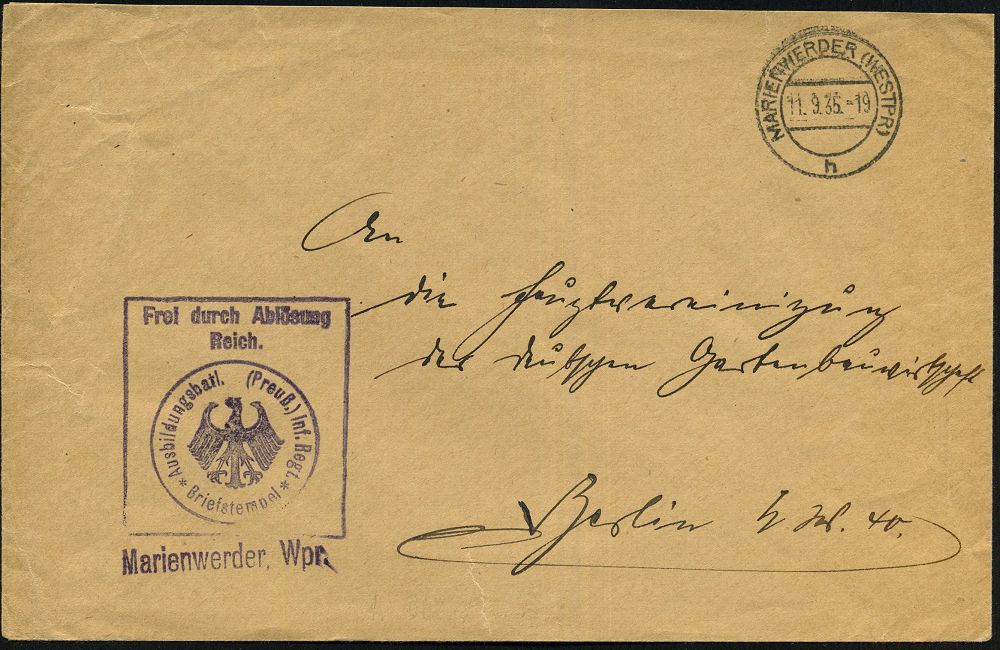 MARIENWERDER (WESTPR)
11. 9. 35.-19
h
An
die Hauptvereinigung
der deutschen Gartenbauwirtschaft
Berlin N.W. 40.
Frei durch Ablösung
Reich.
Ausbildungsbatl. (Preuß.) Inf. Regt.
* Briefstempel *
Marienwerder, Wpr.